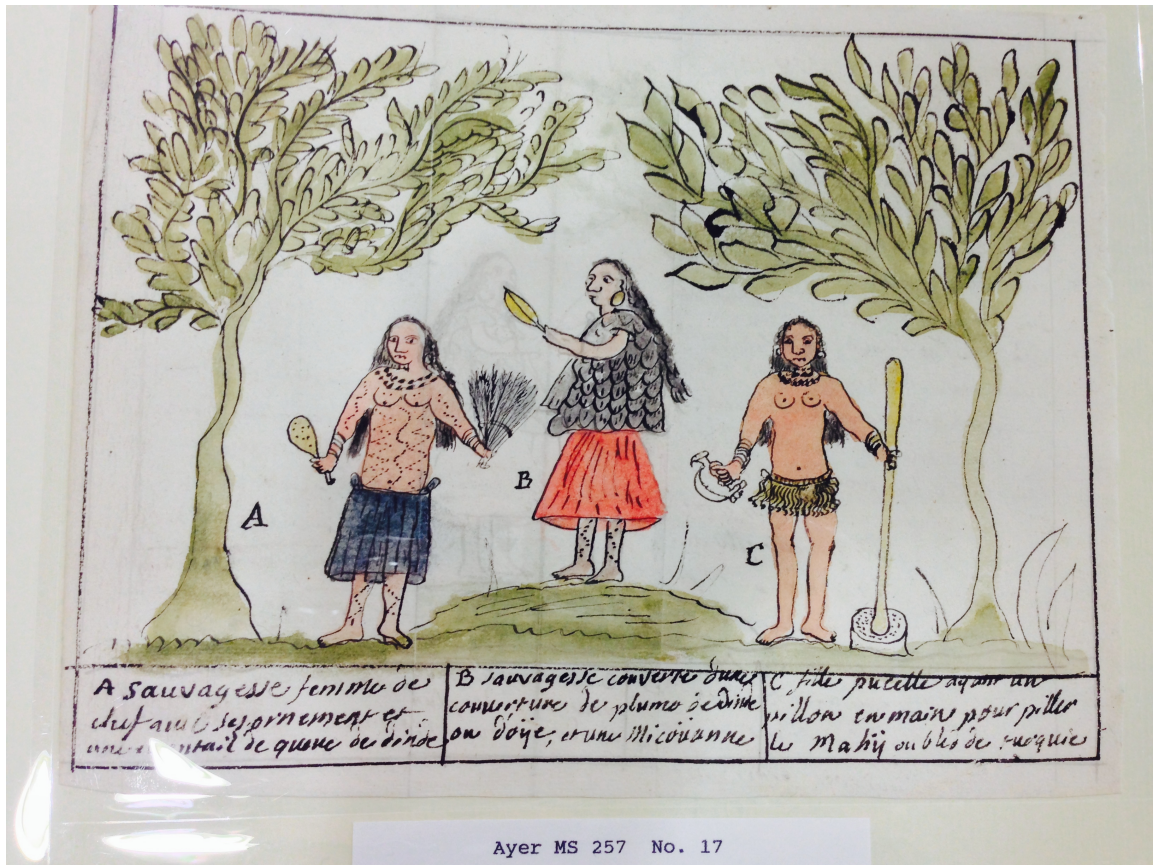 A
B
C
A Sauvagesse femme de
chef avec ses ornement et
une eventail de queue de dinde
B sauvagesse couverte dune
couverture de plume de dinde
ou d'oÿe, et une Micouanne
C fille pucelle ayant un
pillon en main pour piller
le Mahÿ ou bled de
Ayer MS 257 No. 17